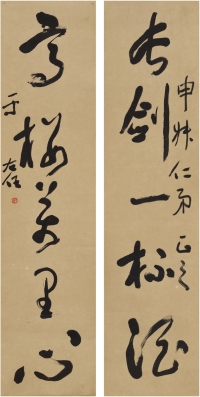 長劍一杯酒
申仁弟正之
高樓萬里心
于右任